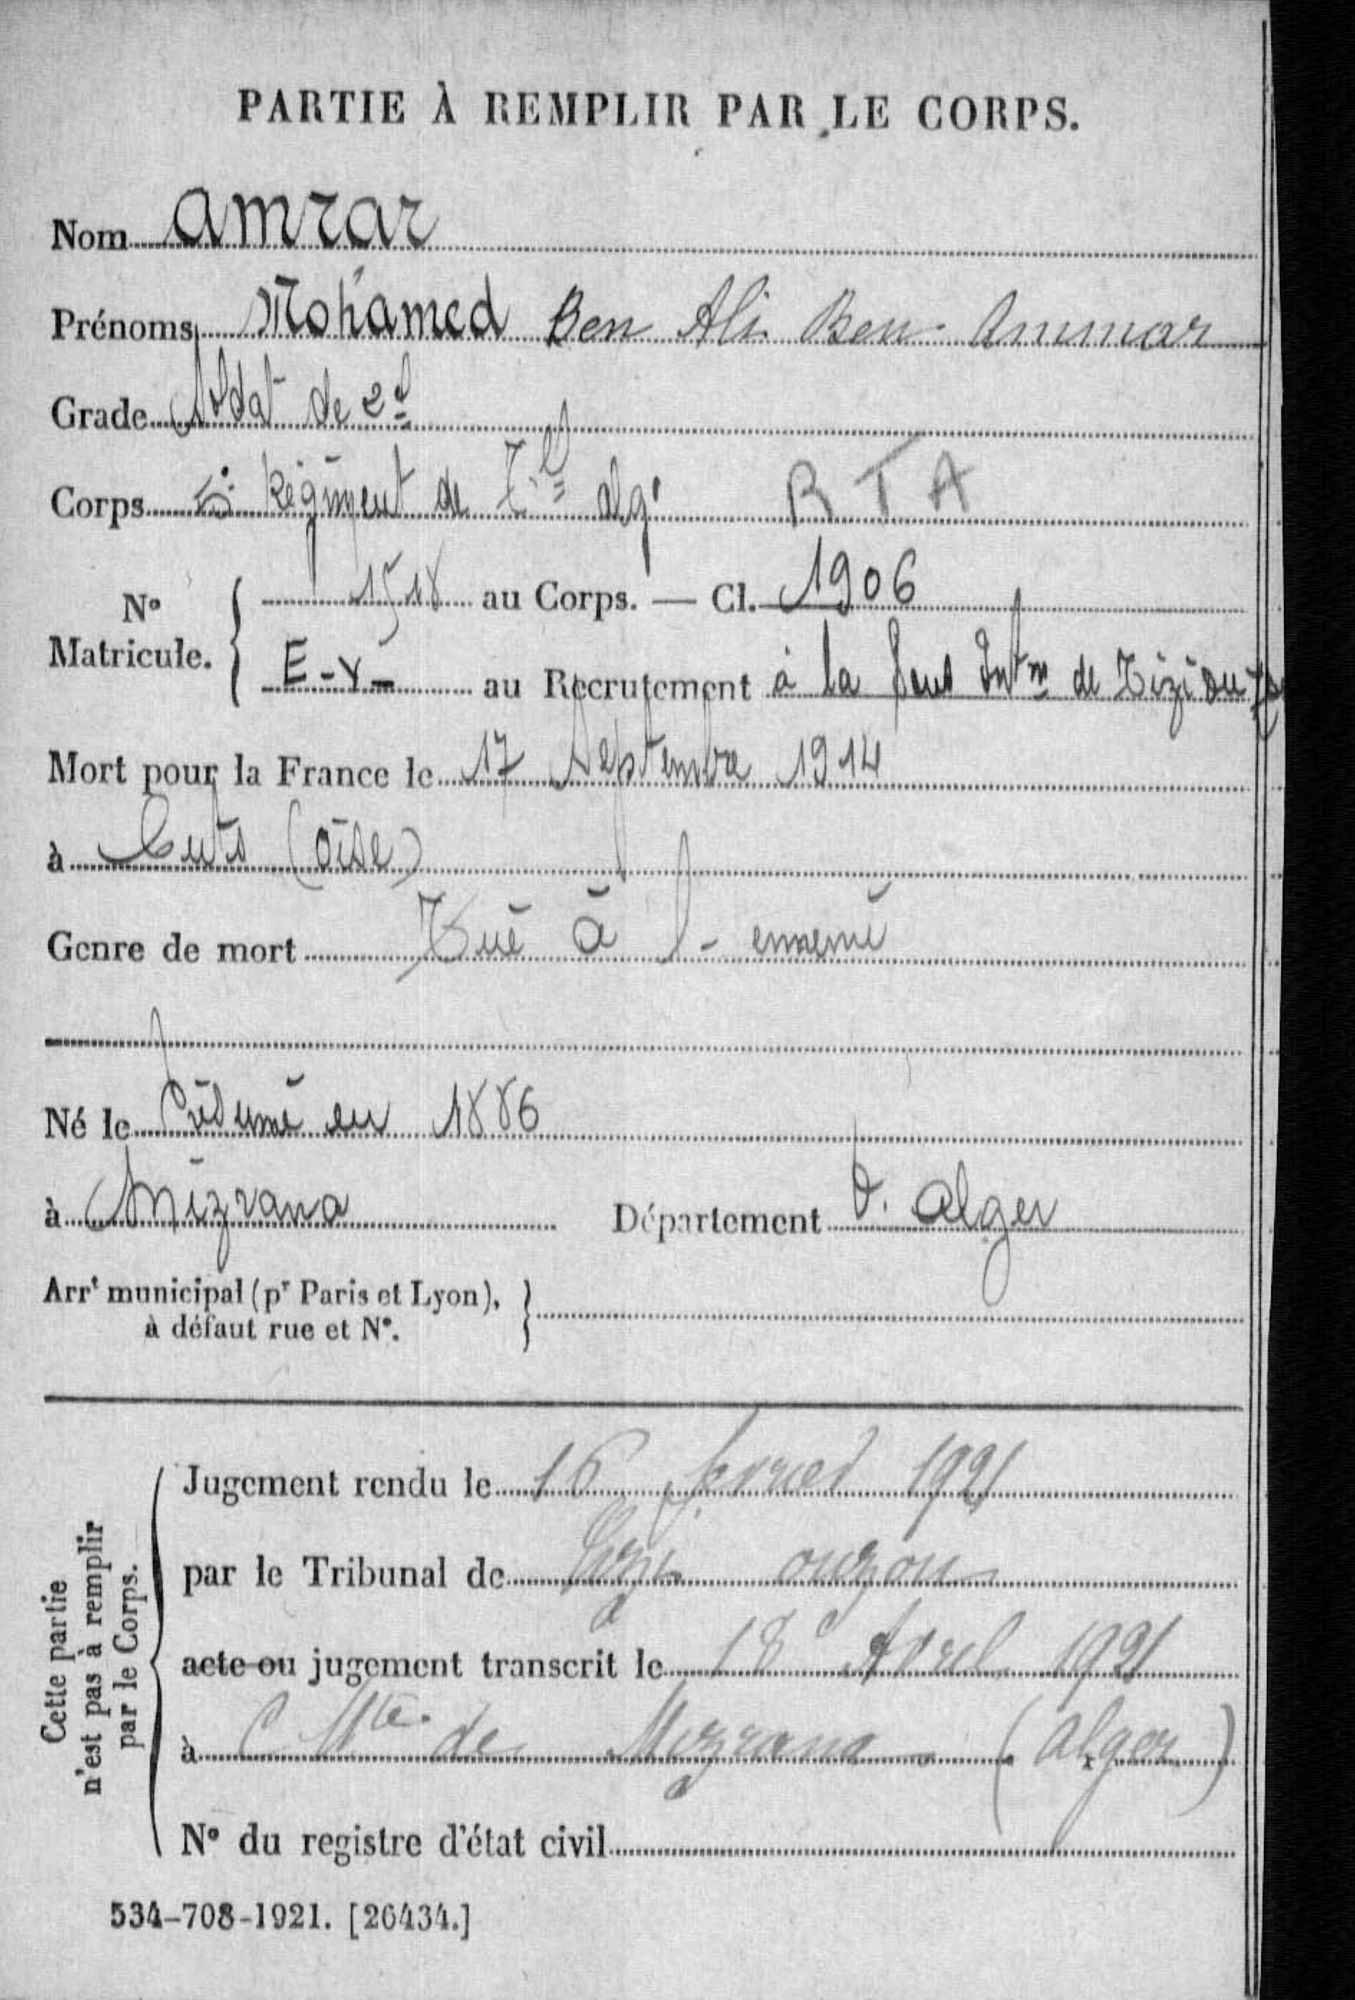 PARTIE À REMPLIR PAR LE CORPS.
Nom Amrar
Prénoms Mohamed Ben Ali Ben Ammar
Grade Soldat de 2e
Corps 5e Régiment de Tirs alg. R T A
No Matricule. 1518 au Corps. — Cl. 1906
E-V- au Recrutement à la Sous Intce de Tizi Ou
Mort pour la France le 17 Septembre 1914
à Cuts (Oise)
Genre de mort Tué à l'ennemi
Né le Présumé en 1886
à Mizrana Département d'Alger
Arrt municipal (pr Paris et Lyon),
à défaut rue et N°.
Cette partie
n'est pas à remplir
par le Corps.
Jugement rendu le 16 février 1921
par le Tribunal de Tizi ouzou
acte ou jugement transcrit le 18 Avril 1921
à C Mte de Mizrana (Alger)
N° du registre d'état civil
534-708-1921. [26434.]